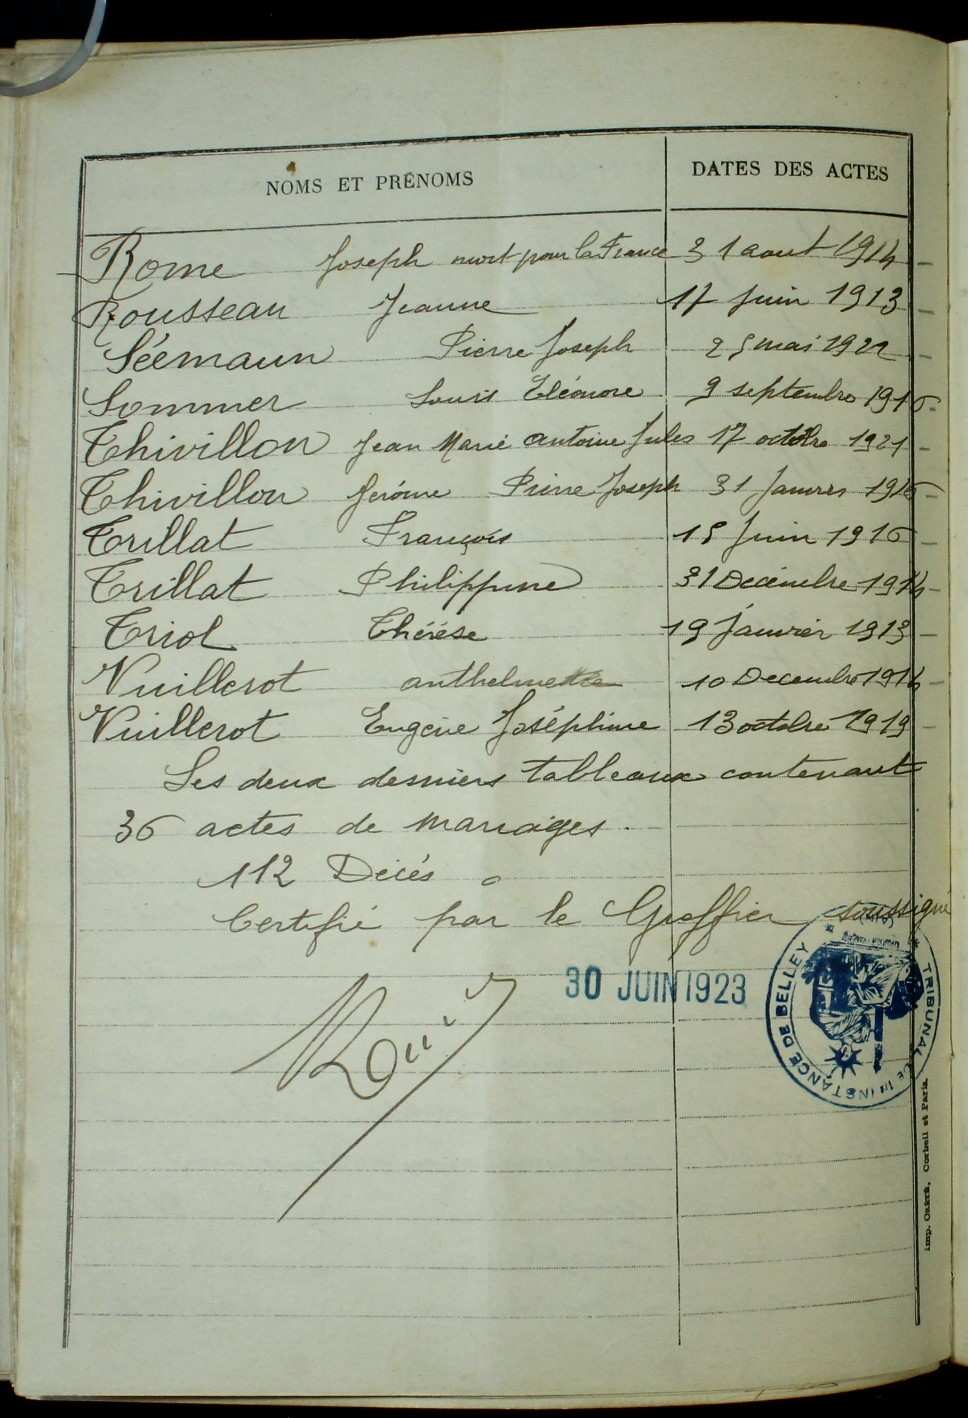 NOMS ET PRÉNOMS DATES DES ACTES
Rome Joseph mort pour la France 31 aout 1914
Rousseau Jeanne 17 Juin 1913
Séemann Pierre Joseph 25 mai 1922
Sommer Louis Eléonore 9 septembre 1916
Thivillon Jean Marie antoine Jules 17 octobre 1921
Thivillon Jérôme Pierre Joseph 31 Janvier 1916
Trillat François 15 Juin 1916
Trillat Philippine 31 Decembre 1914
Triol Thérése 19 Janvier 1913
Vuillerot anthelme 10 Decembre 1914
Vuillerot Eugénie Joséphine 13 octobre 1919
Les deux derniers tableaux contenant
36 actes de mariages
112 Décés
Certifié par le Greffier soussigné
30 JUIN 1923
TRIBUNAL DE 1re INSTANCE DE BELLEY
Imp. Corbeil et Paris.